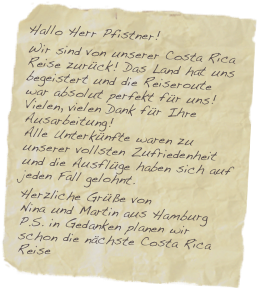 Hallo Herr Pfistner!
Wir sind von unserer Costa Rica
Reise zurück! Das Land hat uns
begeistert und die Reiseroute
war absolut perfekt für uns!
Vielen, vielen Dank für Ihre
Ausarbeitung!
Alle Unterkünfte waren zu
unserer vollsten Zufriedenheit
und die Ausflüge haben sich auf
jeden Fall gelohnt.
Herzliche Grüße von
Nina und Martin aus Hamburg
P.S. in Gedanken planen wir
schon die nächste Costa Rica
Reise